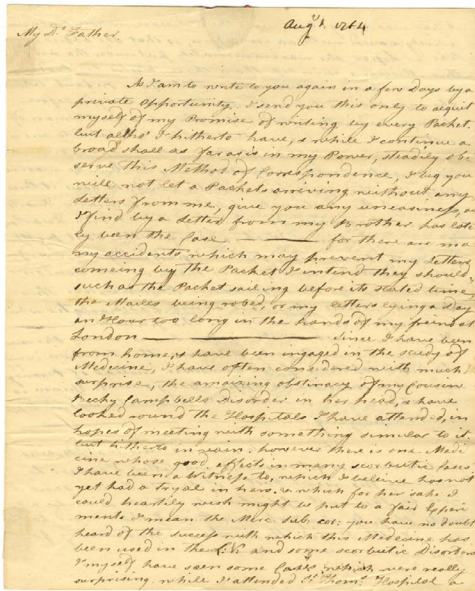 Augt 1. 1764
My Dr. Father
As I am to write to you again in a few Days by a
private Opportunity, I send you this only to acquit
myself of my Promise of writing by every Packet,
but altho' I hitherto have, & while I continue a
broad shall as far as is in my Power, steadily ob
serve this Method of Correspondence, I beg you
will not let a Packets arriving without any
Letters from me, give you any uneasiness, as
I find by a Letter from my Brother has late
ly been the Case ——— for there are ma
ny accidents which may prevent my Letters
comeing by the Packet I intend they should,
such as the Packet sailing before its stated time
the Mailes being robed, or my Letters lying a day
an Hour too long in the hands of my friends
London ——— Since I have been
from home, & have been engaged in the study of
Medicine, I have often considered with much
surprise, the amazing obstinacy of my Cousin
Becky Campbells Disorder in her head, & have
looked round the Hospitals I have attended, in
hopes of meeting with something similar to it
but hitherto in vain; however there is one Medi
cine whose good effects in many scorbutic cases
I have been a witness to, which I believe has not
yet had a tryal in hers, & which for her sake I
could heartily wish might be put to a fair Experi
ment. I mean the Merc: sub: cor: you have no doubt
heard of the success with which this Medicine has
been used in the and some scorbutic Disorders
I myself have seen some Cases which were really
surprising, while I attended St. Thoms. Hospital